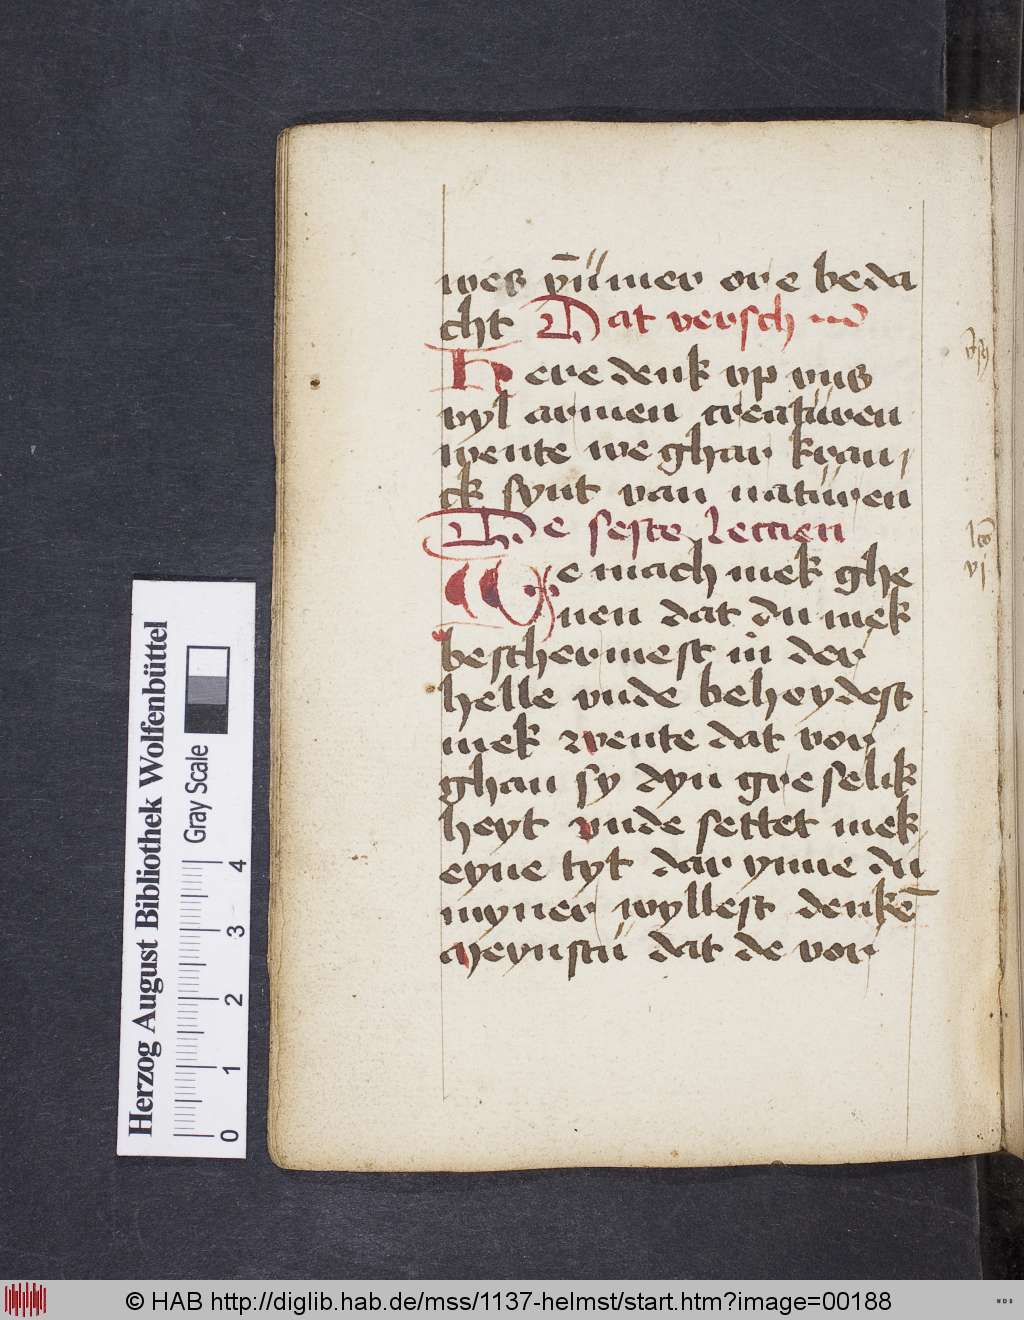 wes ẏ̄ümer ore beda
cht Dat versch
Here denk vp vns
vyl armen creatüren
wente we ghar kran
ck synt van natüren
De seste leccien
We mach mek ghe
uen dat du mek
beschermest in der
helle vnde beheydest
mek wente dat vor
ghan sy dyn greselik
heyt vnde settet mek
eyne tyt dar ynne du
myner wyllest denkē
Meynstü dat de vor
Herzog August Bibliothek Wolfenbüttel
Gray Scale
0 1 2 3 4
© HAB http://diglib.hab.de/mss/1137-helmst/start.htm?image=00188